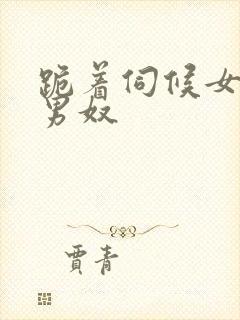 跪着伺候女
男奴
賈青